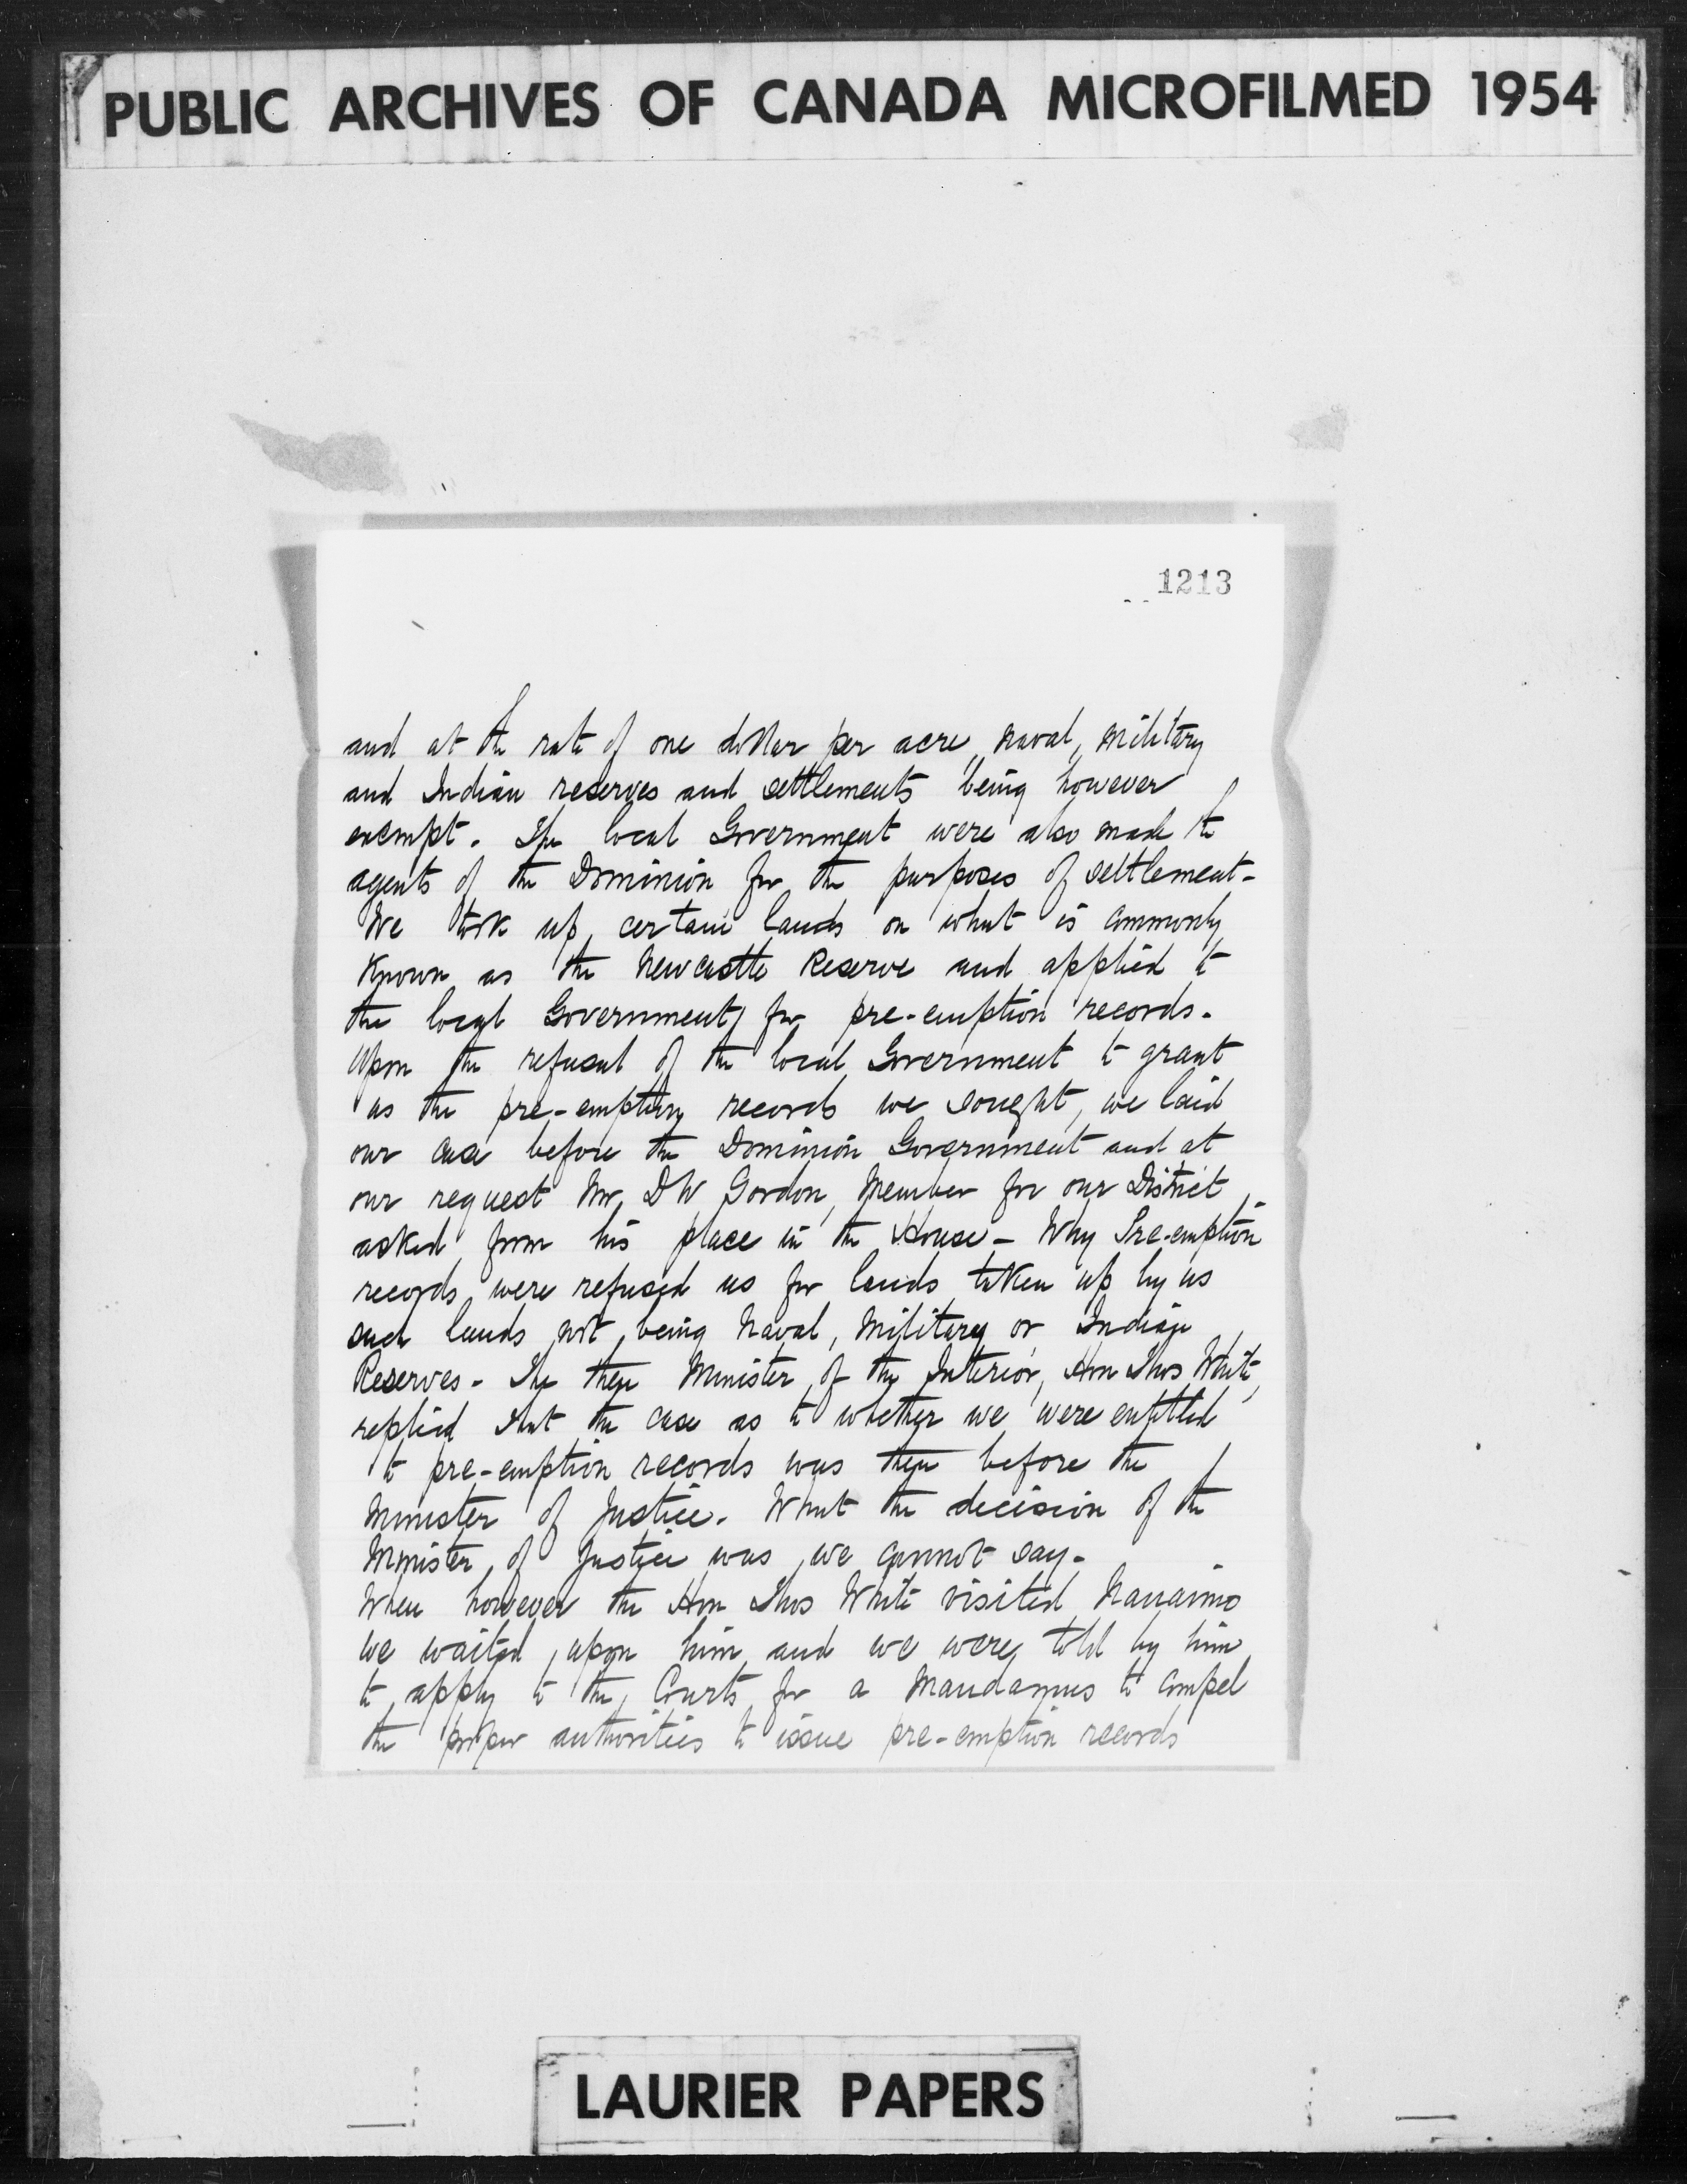 PUBLIC ARCHIVES OF CANADA MICROFILMED 1954
1213
and at the rate of one dollar per acre, naval, military
and Indian reserves and settlements being however
exempt. The local Government were also made the
agents of the Dominion for the purposes of settlement-
We took up certain lands on what is commonly
known as the Newcastle Reserve and applied to
the local Government for pre-emption records.
Upon the refusal of the local Government to grant
us the pre-emption records we sought, we laid
our case before the Dominion Government and at
our request Mr. D W Gordon, Member for our District,
asked from his place in the House - Why Pre-emption
records were refused us for lands taken up by us
such lands not being Naval, Military or Indian
Reserves - The then Minister of the Interior, Hon Thos White,
replied that the case as to whether we were entitled
to pre-emption records was then before the
Minister of Justice. What the decision of the
Minister of Justice was, we cannot say-
When however the Hon Thos White visited Nanaimo
we waited upon him and we were told by him
to apply to the Courts for a Mandamus to compel
the proper authorities to issue pre-emption records
LAURIER PAPERS